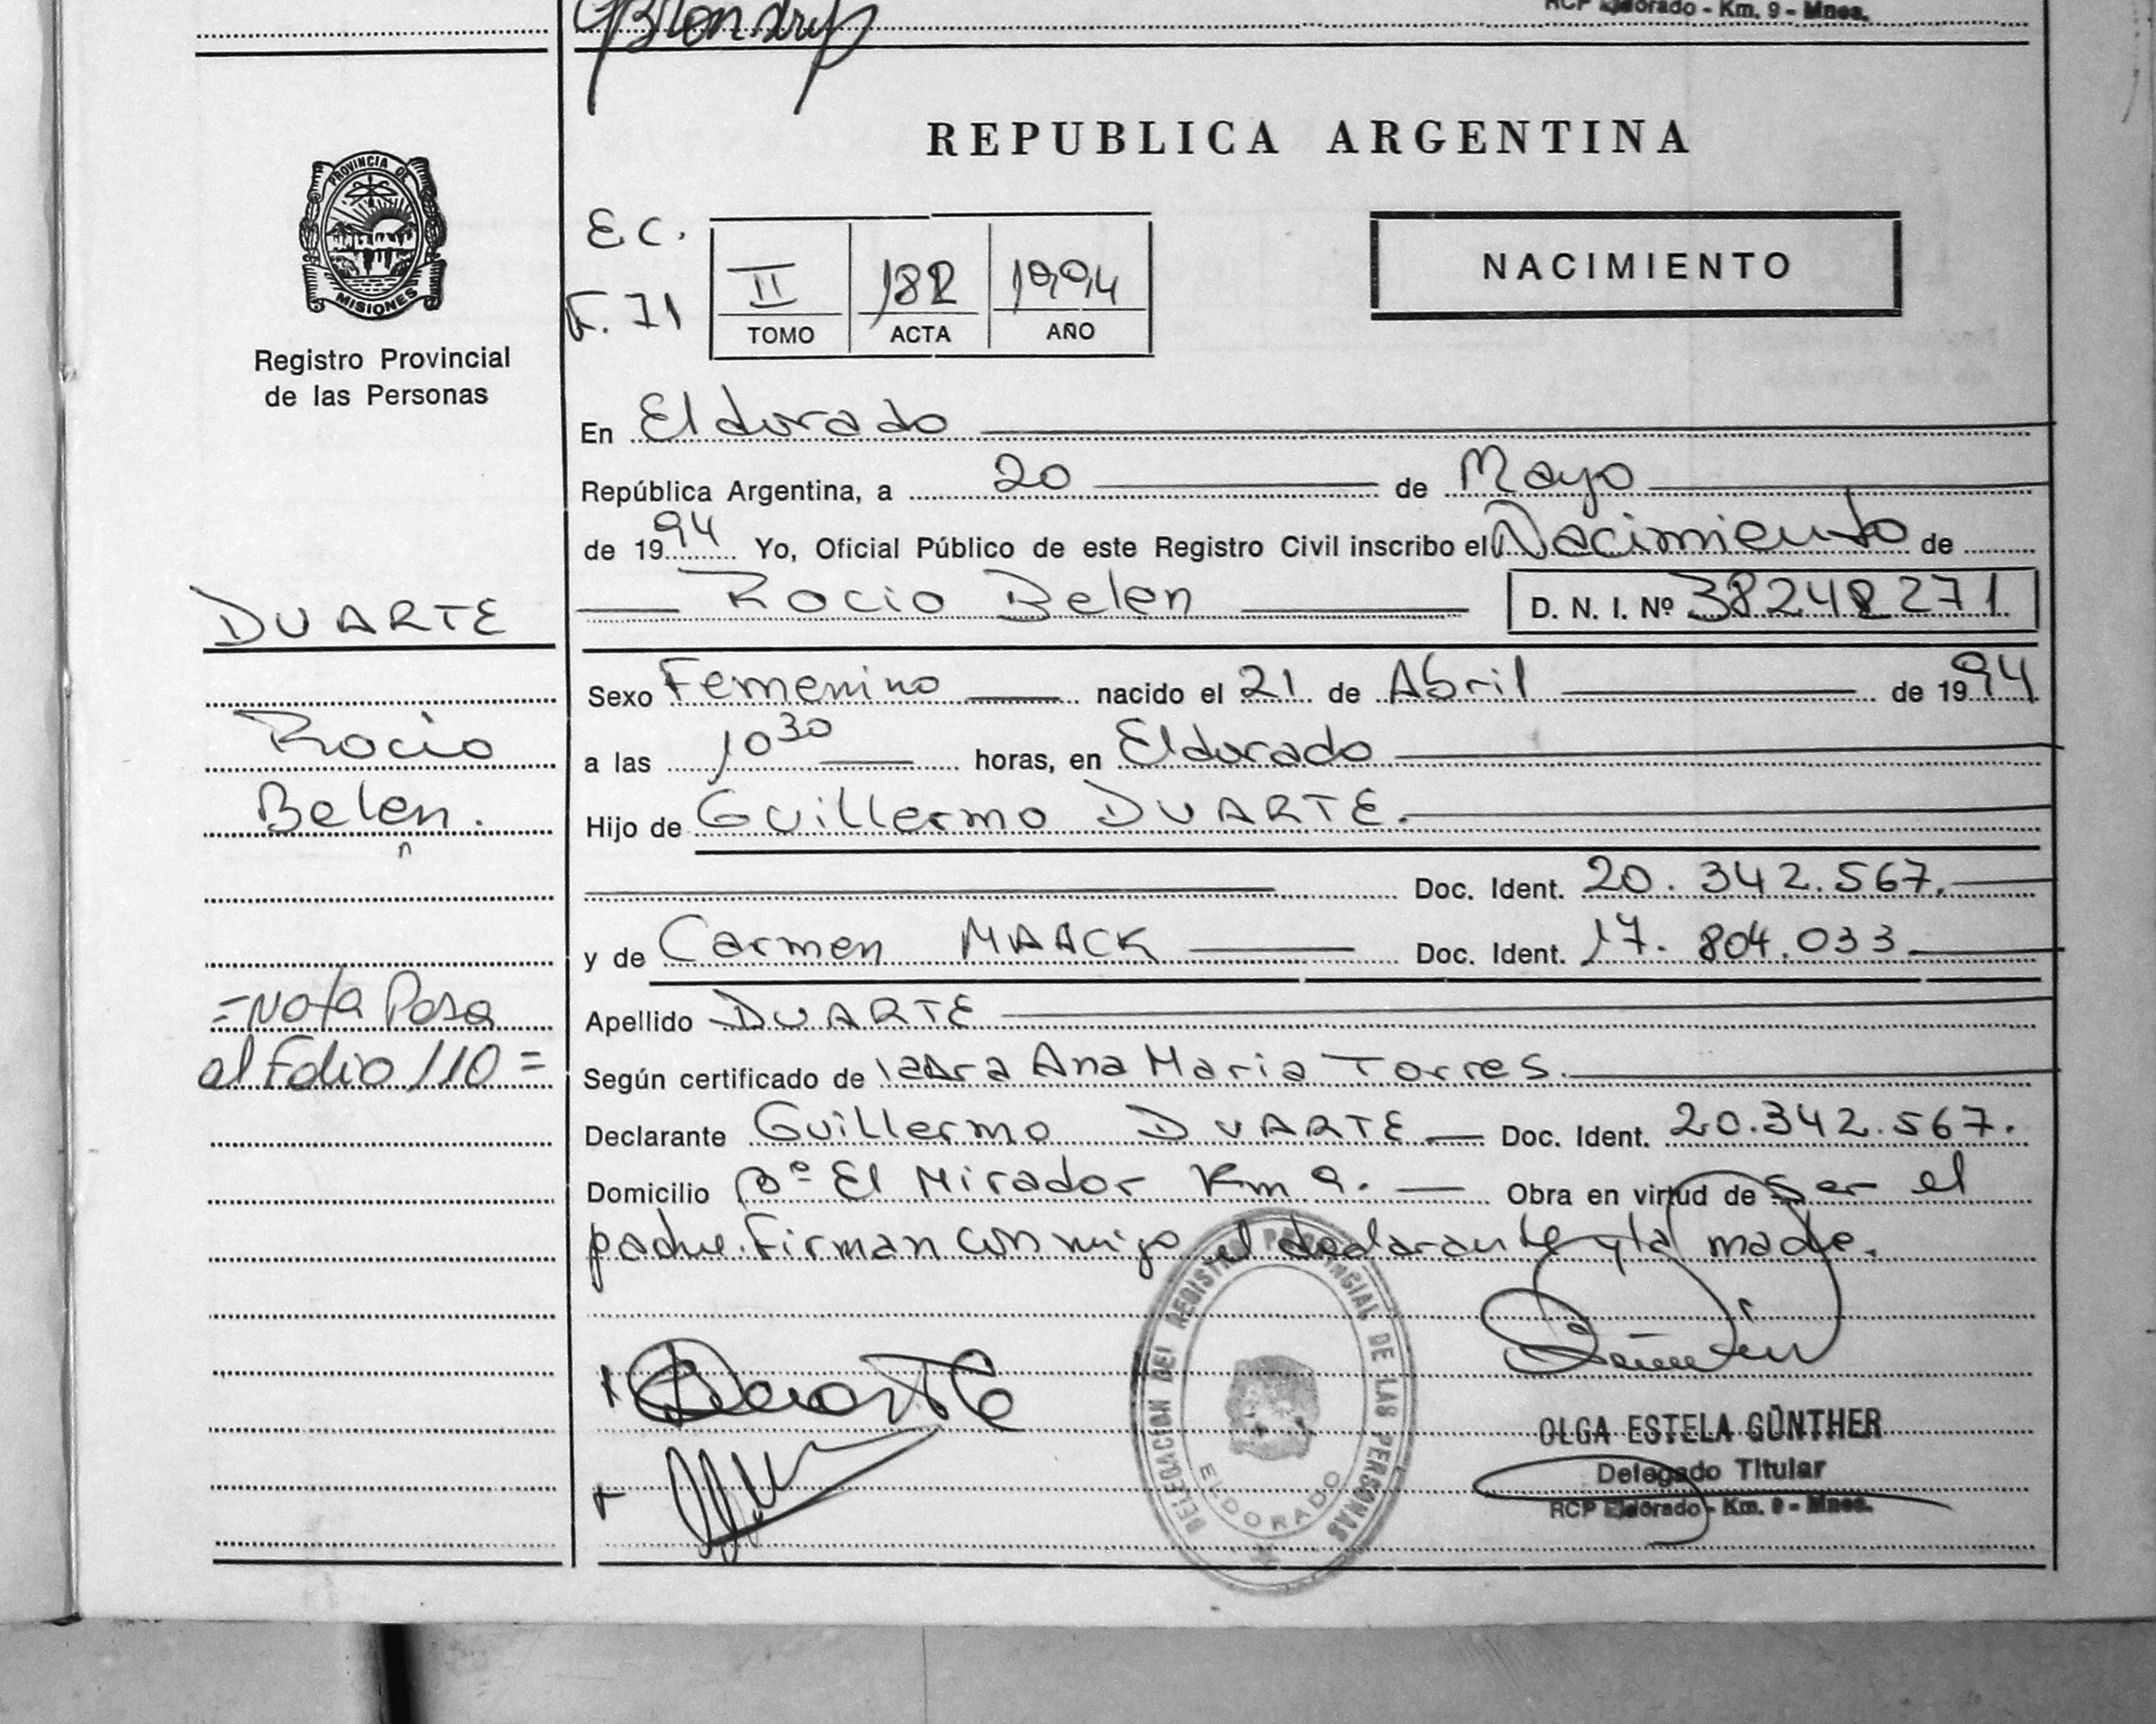 RCP Eldorado - Km. 9 - Mnes.
REPUBLICA ARGENTINA
PROVINCIA DE
MISIONES
Registro Provincial
de las Personas
E.C.
F. 71
II 182 1994
TOMO ACTA AÑO
NACIMIENTO
En Eldorado
República Argentina, a 20 de Mayo
de 1994 Yo, Oficial Público de este Registro Civil inscribo el Nacimiento de
Rocio Belen D. N. I. Nº 38248271
DUARTE
Sexo Femenino nacido el 21 de Abril de 1994
Rocio
a las 10 30 horas, en Eldorado
Belen.
Hijo de Guillermo DUARTE.
Doc. Ident. 20.342.567.
y de Carmen MAACK Doc. Ident. 17.804.033
=Nota Pasa
Apellido DUARTE
al Folio 110=
Según certificado de la Dra Ana Maria Torres.
Declarante Guillermo DUARTE Doc. Ident. 20.342.567.
Domicilio Bº El Mirador Km 9. Obra en virtud de ser el
padre. Firman conmigo el declarante y la madre.
Duarte
DELEGACION DEL REGISTRO PROVINCIAL DE LAS PERSONAS
ELDORADO
OLGA ESTELA GÜNTHER
Delegado Titular
RCP Eldorado - Km. 9 - Mnes.